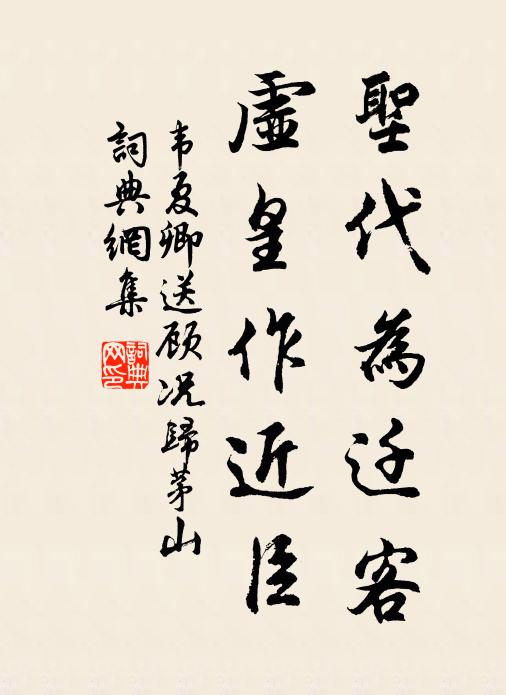 聖代為迁客
虛皇作近臣
韦夏卿送顾况歸茅山
詞典網集
詞典网印